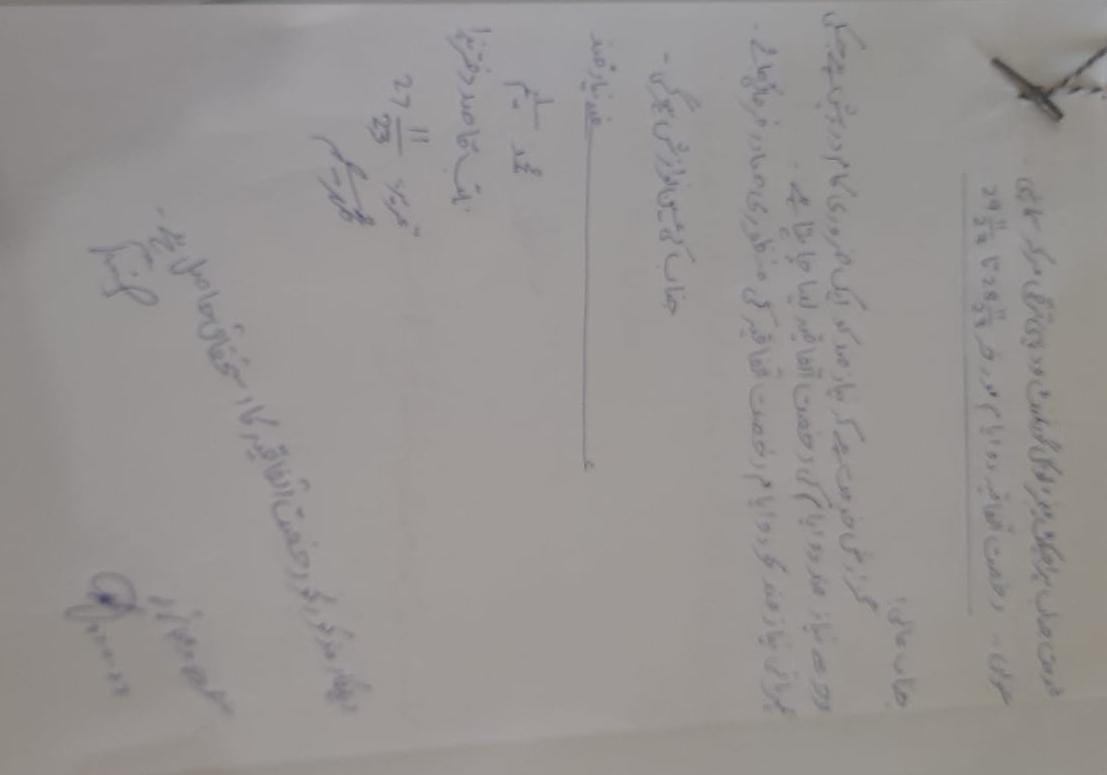 خدمت جناب پراجیکٹ مینجر لوکل گورنمنٹ و دیہی ترقی مرکز سماہنی
عنوان۔ رخصت اتفاقیہ دو ایام مورخہ 28 11/23 تا 29 11/23
جناب عالی!
گزارش خدمت ہے کہ نیاز مند کو ایک ضروری کام درپیش ہے جسکی
وجہ سے نیاز مند دو ایام کی رخصت اتفاقیہ لینا چاہتا ہے۔
مہربانی نیاز مند کو دو ایام رخصت اتفاقیہ کی منظوری صادر فرمائی جائے۔
جناب کی عین نوازش ہوگی۔
نیاز مند
محمد سلیم
نائب قاصد دفتر ہذا
تحریر 27 11/23
محمد سلیم
اہلکار مذکور کو رخصت اتفاقیہ کا استحقاق حاصل ہے۔